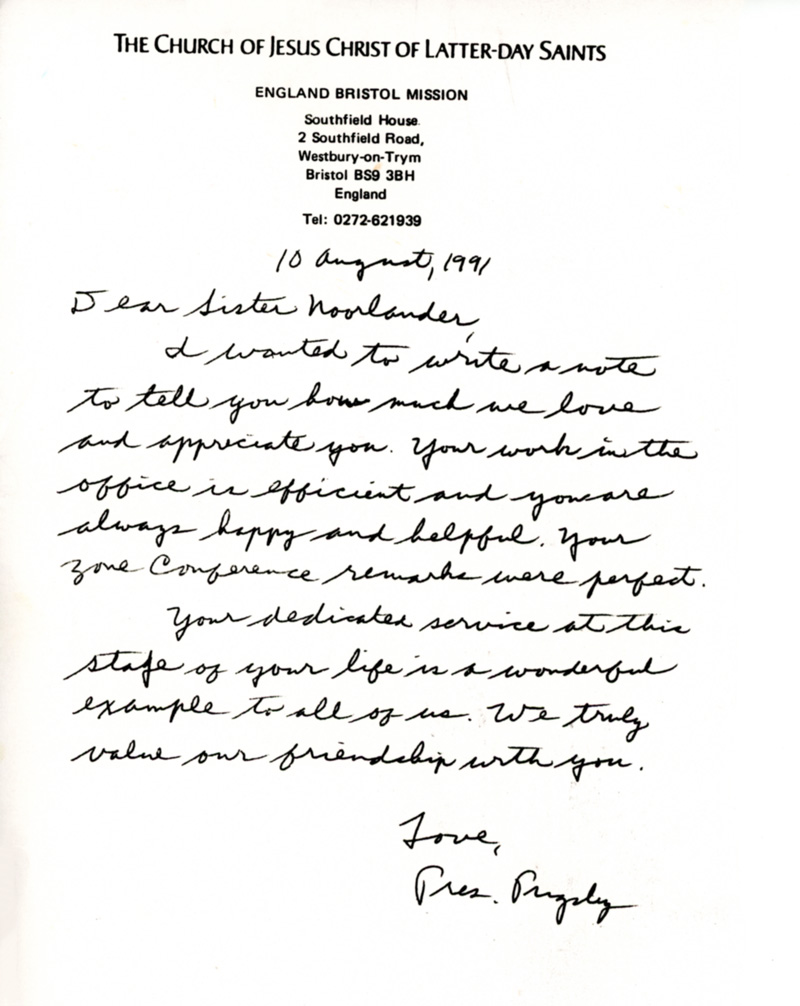 THE CHURCH OF JESUS CHRIST OF LATTER-DAY SAINTS
ENGLAND BRISTOL MISSION
Southfield House
2 Southfield Road,
Westbury-on-Trym
Bristol BS9 3BH
England
Tel: 0272-621939
10 August, 1991
Dear Sister Noorlander,
I wanted to write a note
to tell you how much we love
and appreciate you. Your work in the
office is efficient and you are
always happy and helpful. Your
zone Conference remarks were perfect.
Your dedicated service at this
stage of your life is a wonderful
example to all of us. We truly
value our friendship with you.
Love,
Pres. Pugsley